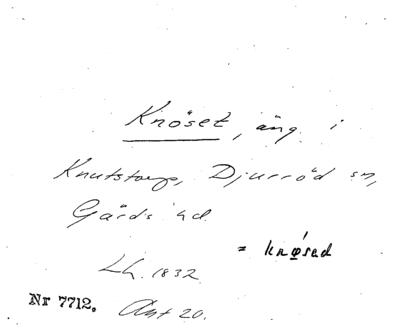 Knöset, äng i
Knutstorp, Djurröd sn,
Gärds hd.
= knøsed
Lh. 1832
Nr 7712. Akt 20.